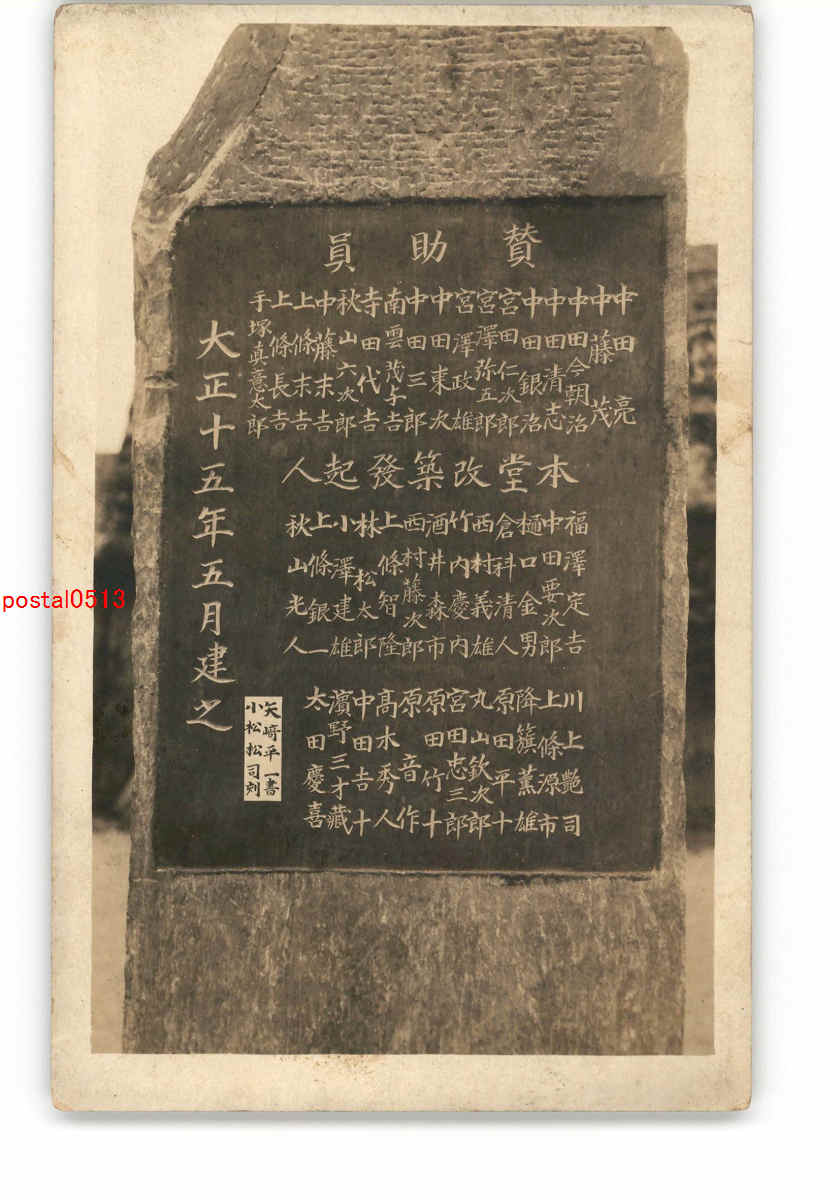 賛助員
中田亮
中藤茂
中田今朝治
中田清志
中田銀治
宮田仁次郎
宮澤弥五郎
宮澤政雄
中田東次
中田三郎
南雲茂吉
寺田代吉
秋山六次郎
中藤末吉
上條末吉
上條長吉
手塚真意太郎
本堂改築發起人
福澤定吉
中田要次郎
樋口金男
倉科清人
西村義雄
竹内慶内
酒井森市
西村藤次郎
上條智隆
林松太郎
小澤建雄
上條銀一
秋山光人
川上艶司
上條源市
降籏薫雄
原田平十
丸山欽次郎
宮田忠三郎
原田竹十
原音作
髙木秀人
中田吉十
濵野三才藏
太田慶喜
矢﨑平一書
小松松司刻
大正十五年五月建之
postal0513